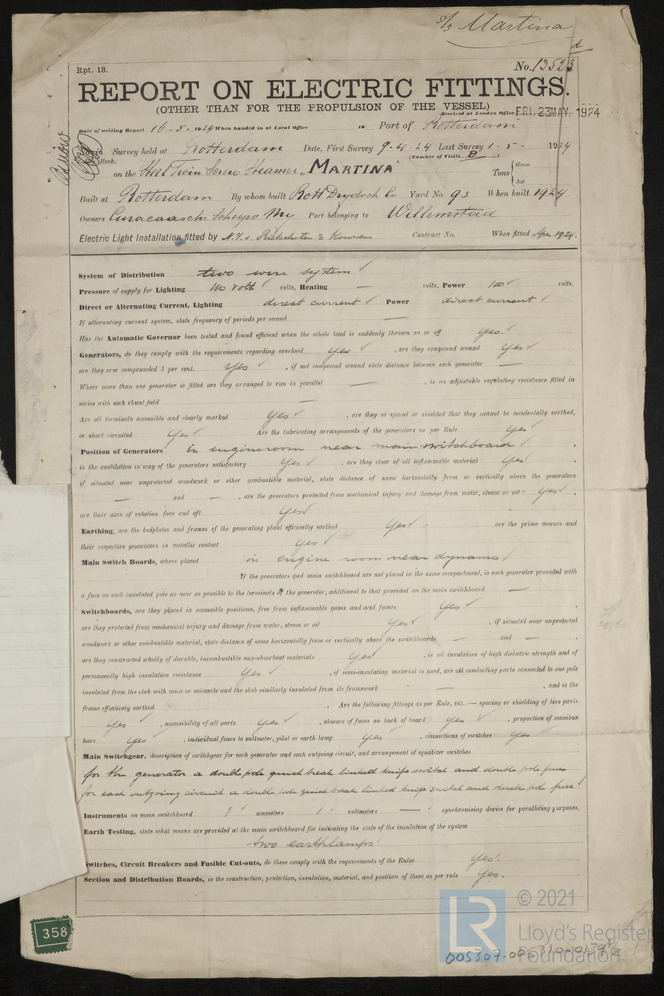 s/s Martina
Rpt. 13.
No. 13523
REPORT ON ELECTRIC FITTINGS.
(OTHER THAN FOR THE PROPULSION OF THE VESSEL)
Received at London Office FRI. 23 MAY. 1924
Date of writing Report 16-5-1924 When handed in at Local Office 19 Port of Rotterdam
Survey held at Rotterdam Date, First Survey 9-4-24 Last Survey 1-5-1924
Book.
(Number of Visits 8)
on the Steel Twin Screw Steamer "MARTINA"
Tons { Gross
Net
Built at Rotterdam By whom built Rott Drydock Co Yard No. 93 When built 1924
Owners Curacaosche Scheepv My Port belonging to Willemstad
Electric Light Installation fitted by N.V. Contract No. When fitted Apr. 1924.
System of Distribution two wire system
Pressure of supply for Lighting 110 volt volts, Heating — volts, Power 100 volts.
Direct or Alternating Current, Lighting direct current Power direct current
If alternating current system, state frequency of periods per second —
Has the Automatic Governor been tested and found efficient when the whole load is suddenly thrown on or off yes.
Generators, do they comply with the requirements regarding overload yes , are they compound wound yes
are they over compounded 5 per cent. yes , if not compound wound state distance between each generator —
Where more than one generator is fitted are they arranged to run in parallel — , is an adjustable regulating resistance fitted in
series with each shunt field —
Are all terminals accessible and clearly marked yes , are they so spaced or shielded that they cannot be accidentally earthed,
or short circuited yes Are the lubricating arrangements of the generators as per Rule yes
Position of Generators in engineroom near main switchboard
is the ventilation in way of the generators satisfactory yes , are they clear of all inflammable material yes
if situated near unprotected woodwork or other combustible material, state distance of same horizontally from or vertically above the generators
— and — , are the generators protected from mechanical injury and damage from water, steam or oil yes
are their axis of rotation fore and aft yes
Earthing, are the bedplates and frames of the generating plant efficiently earthed yes are the prime movers and
their respective generators in metallic contact yes
Main Switch Boards, where placed in engine room near dynamos
If the generators and main switchboard are not placed in the same compartment, is each generator provided with
a fuse on each insulated pole as near as possible to the terminals of the generator, additional to that provided on the main switchboard —
Switchboards, are they placed in accessible positions, free from inflammable gases and acid fumes yes
are they protected from mechanical injury and damage from water, steam or oil yes , if situated near unprotected
woodwork or other combustible material, state distance of same horizontally from or vertically above the switchboards — and —
are they constructed wholly of durable, incombustible non-absorbent materials yes , is all insulation of high dielectric strength and of
permanently high insulation resistance yes , if semi-insulating material is used, are all conducting parts connected to one pole
insulated from the slab with mica or micanite and the slab similarly insulated from its framework — , and is the
frame effectively earthed Are the following fittings as per Rule, viz. :— spacing or shielding of live parts
yes , accessibility of all parts yes , absence of fuses on back of board yes , proportion of omnibus
bars yes , individual fuses to voltmeter, pilot or earth lamp yes , connections of switches yes
Main Switchgear, description of switchgear for each generator and each outgoing circuit, and arrangement of equalizer switches
for the generator a double pole quick break linked knife switch and double pole fuse
for each outgoing circuit a double pole quick break linked knife switch and double pole fuse
Instruments on main switchboard 1 ammeters 1 voltmeters — synchronising device for paralleling purposes.
Earth Testing, state what means are provided at the main switchboard for indicating the state of the insulation of the system
two earthlamps
Switches, Circuit Breakers and Fusible Cut-outs, do these comply with the requirements of the Rules yes.
Section and Distribution Boards, is the construction, protection, insulation, material, and position of these as per rule yes.
358
LR
© 2021
Lloyd's Register
Foundation